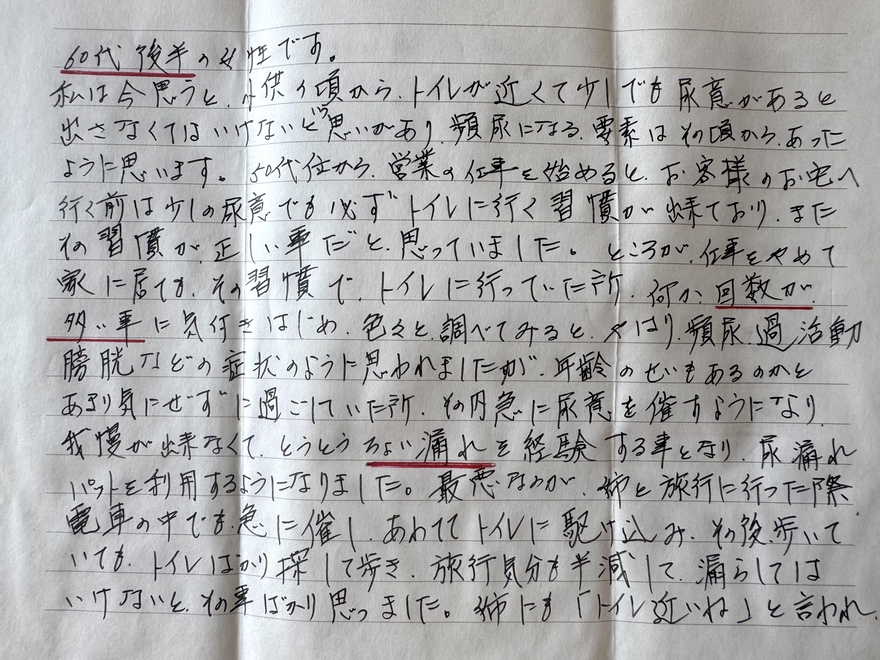 60代後半の女性です。
私は今思うと、小供の頃から、トイレが近くて少しでも尿意があると
出さなくてはいけないと思いがあり、頻尿になる、要素はその頃から、あった
ように思います。50代位から、営業の仕事を始めると、お客様のお宅へ
行く前は少しの尿意でも必ずトイレに行く習慣が出来ており、また
その習慣が、正しい事だと、思っていました。ところが、仕事をやめて
家に居ても、その習慣で、トイレに行っていた所、何か、回数が、
多い事に気付きはじめ、色々と調べてみると、やはり、頻尿、過活動
膀胱などの症状のように思われましたが、年齢のせいもあるのかと
あまり気にせずに過ごしていた所、その内急に尿意を催すようになり
我慢が出来なくて、とうとうちょい漏れを経験する事となり、尿漏れ
パットを利用するようになりました。最悪なのが、姉と旅行に行った際、
電車の中でも急に催し、あわててトイレに駆け込み、その後、歩いて
いても、トイレばかり探して歩き、旅行気分も半減して、漏らしては
いけないと、その事ばかり思っました。姉にも「トイレ近いね」と言われ、